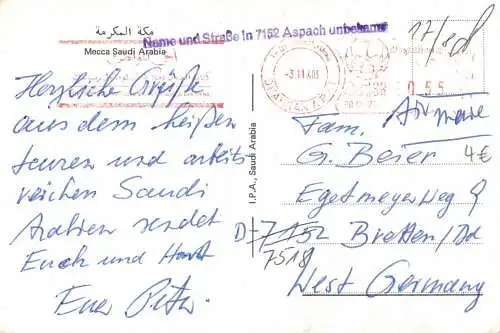 مكة المكرمة
Mecca Saudi Arabia
Name und Straße in 7152 Aspach unbekannt
17/8
-3.11.
DHAHRAN A.P.
0 5 5
Herzliche Grüße
aus dem heißen
teuren und arbeits-
reichen Saudi
Arabien sendet
Euch und Horst
Euer Peter
I.P.A., Saudi Arabia
Air mail
Fam.
G. Beier
4€
Egetmeyer Weg 9
D-7152 Bretten/Bd
7518
West Germany